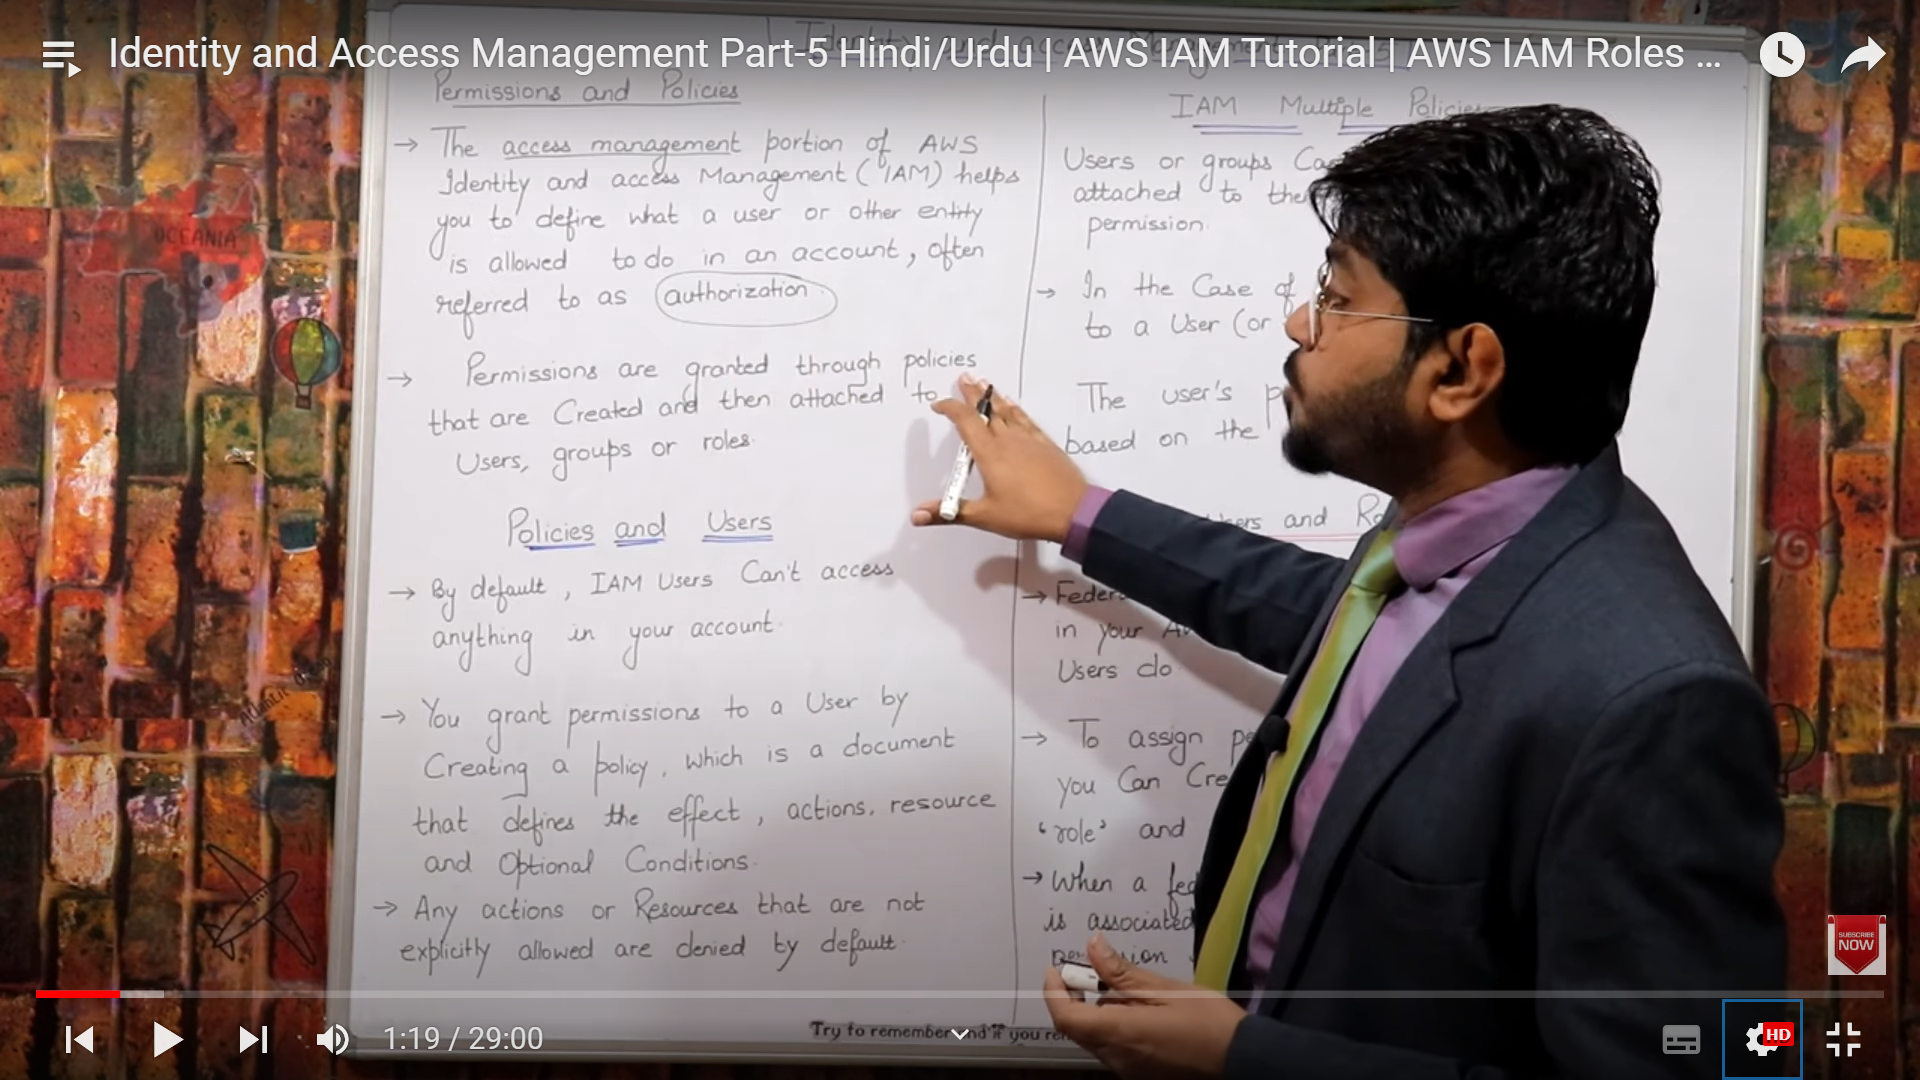 Identity and Access Management Part-5 Hindi/Urdu | AWS IAM Tutorial | AWS IAM Roles ...
Permissions and Policies
→ The access management portion of AWS
Identity and access Management (IAM) helps
you to define what a user or other entity
is allowed to do in an account, often
referred to as authorization.
→ Permissions are granted through policies
that are Created and then attached to
Users, groups or roles.
Policies and Users
→ By default, IAM Users Can't access
anything in your account.
→ You grant permissions to a User by
Creating a policy, which is a document
that defines the effect, actions, resource
and Optional Conditions.
→ Any actions or Resources that are not
explicitly allowed are denied by default.
IAM Multiple Policies
Users or groups
attached to
permission.
→ In the Case of
to a User (or
The user's
based on the
and
→
in your
Users do
→ To assign
you Can
'role' and
→ When a
is associated
Try to remember
if you
OCEANIA
SUBSCRIBE
NOW
1:19 / 29:00
HD